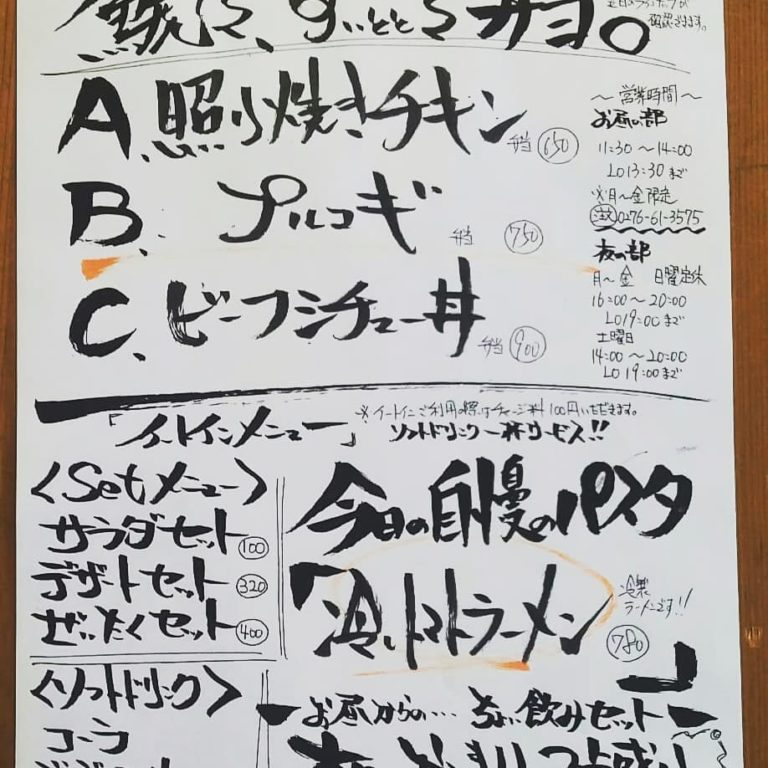 A、照り焼きチキン 弁当 650
B、プルコギ 弁当 750
C、ビーフシチュー丼 弁当 900
確認できます。
〜営業時間〜
お昼の部
11:30〜14:00
LO13:30まで
※月〜金限定
注文 0276-61-3575
夜の部
月〜金 日曜定休
16:00〜20:00
LO19:00まで
土曜日
14:00〜20:00
LO19:00まで
「イートインメニュー」
※イートインご利用の際はチャージ料100円いただきます。
ソフトドリンク一杯サービス!!
〈Setメニュー〉
サラダセット 100
デザートセット 320
ぜいたくセット 400
〈ソフトドリンク〉
コーラ
今日の自慢のパスタ
「冷トマトラーメン」 780
冷製
ラーメンです!!
お昼からの… ちょい飲みセット